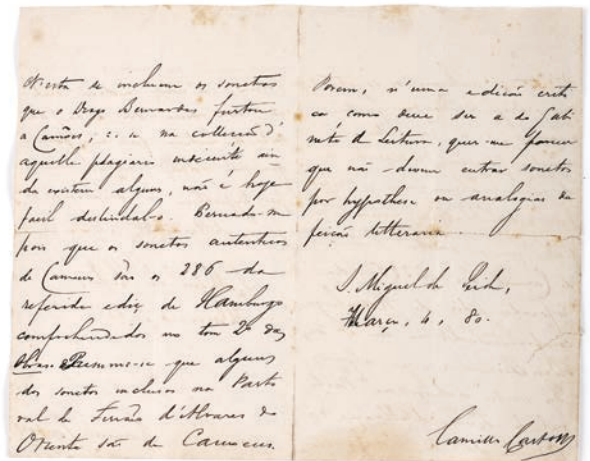 N'esta se incluem os sonetos
que o Diogo Bernardes furtou
a Camões; e se na collecção d'
aquelle plagiario insciente ain
da existem alguns, não é hoje
facil deslindal-o. Persuado-me
pois que os sonetos autenticos
de Camoens são os 286 da
referida ediç de Hamburgo
comprehendidos no tom 2º das
Obras. Presume-se que alguns
dos sonetos inclusos na Parte
val de Fernão d'Alvares do
Oriente são de Camoens.
Porem, n'uma edicão criti
ca como deve ser a do Gabi
nete de Leitura, quer-me parecer
que não devem entrar sonetos
por hypothese ou analogias de
feicão litteraria.
S. Miguel de Seide,
Março, 4, 80.
Camillo Castello